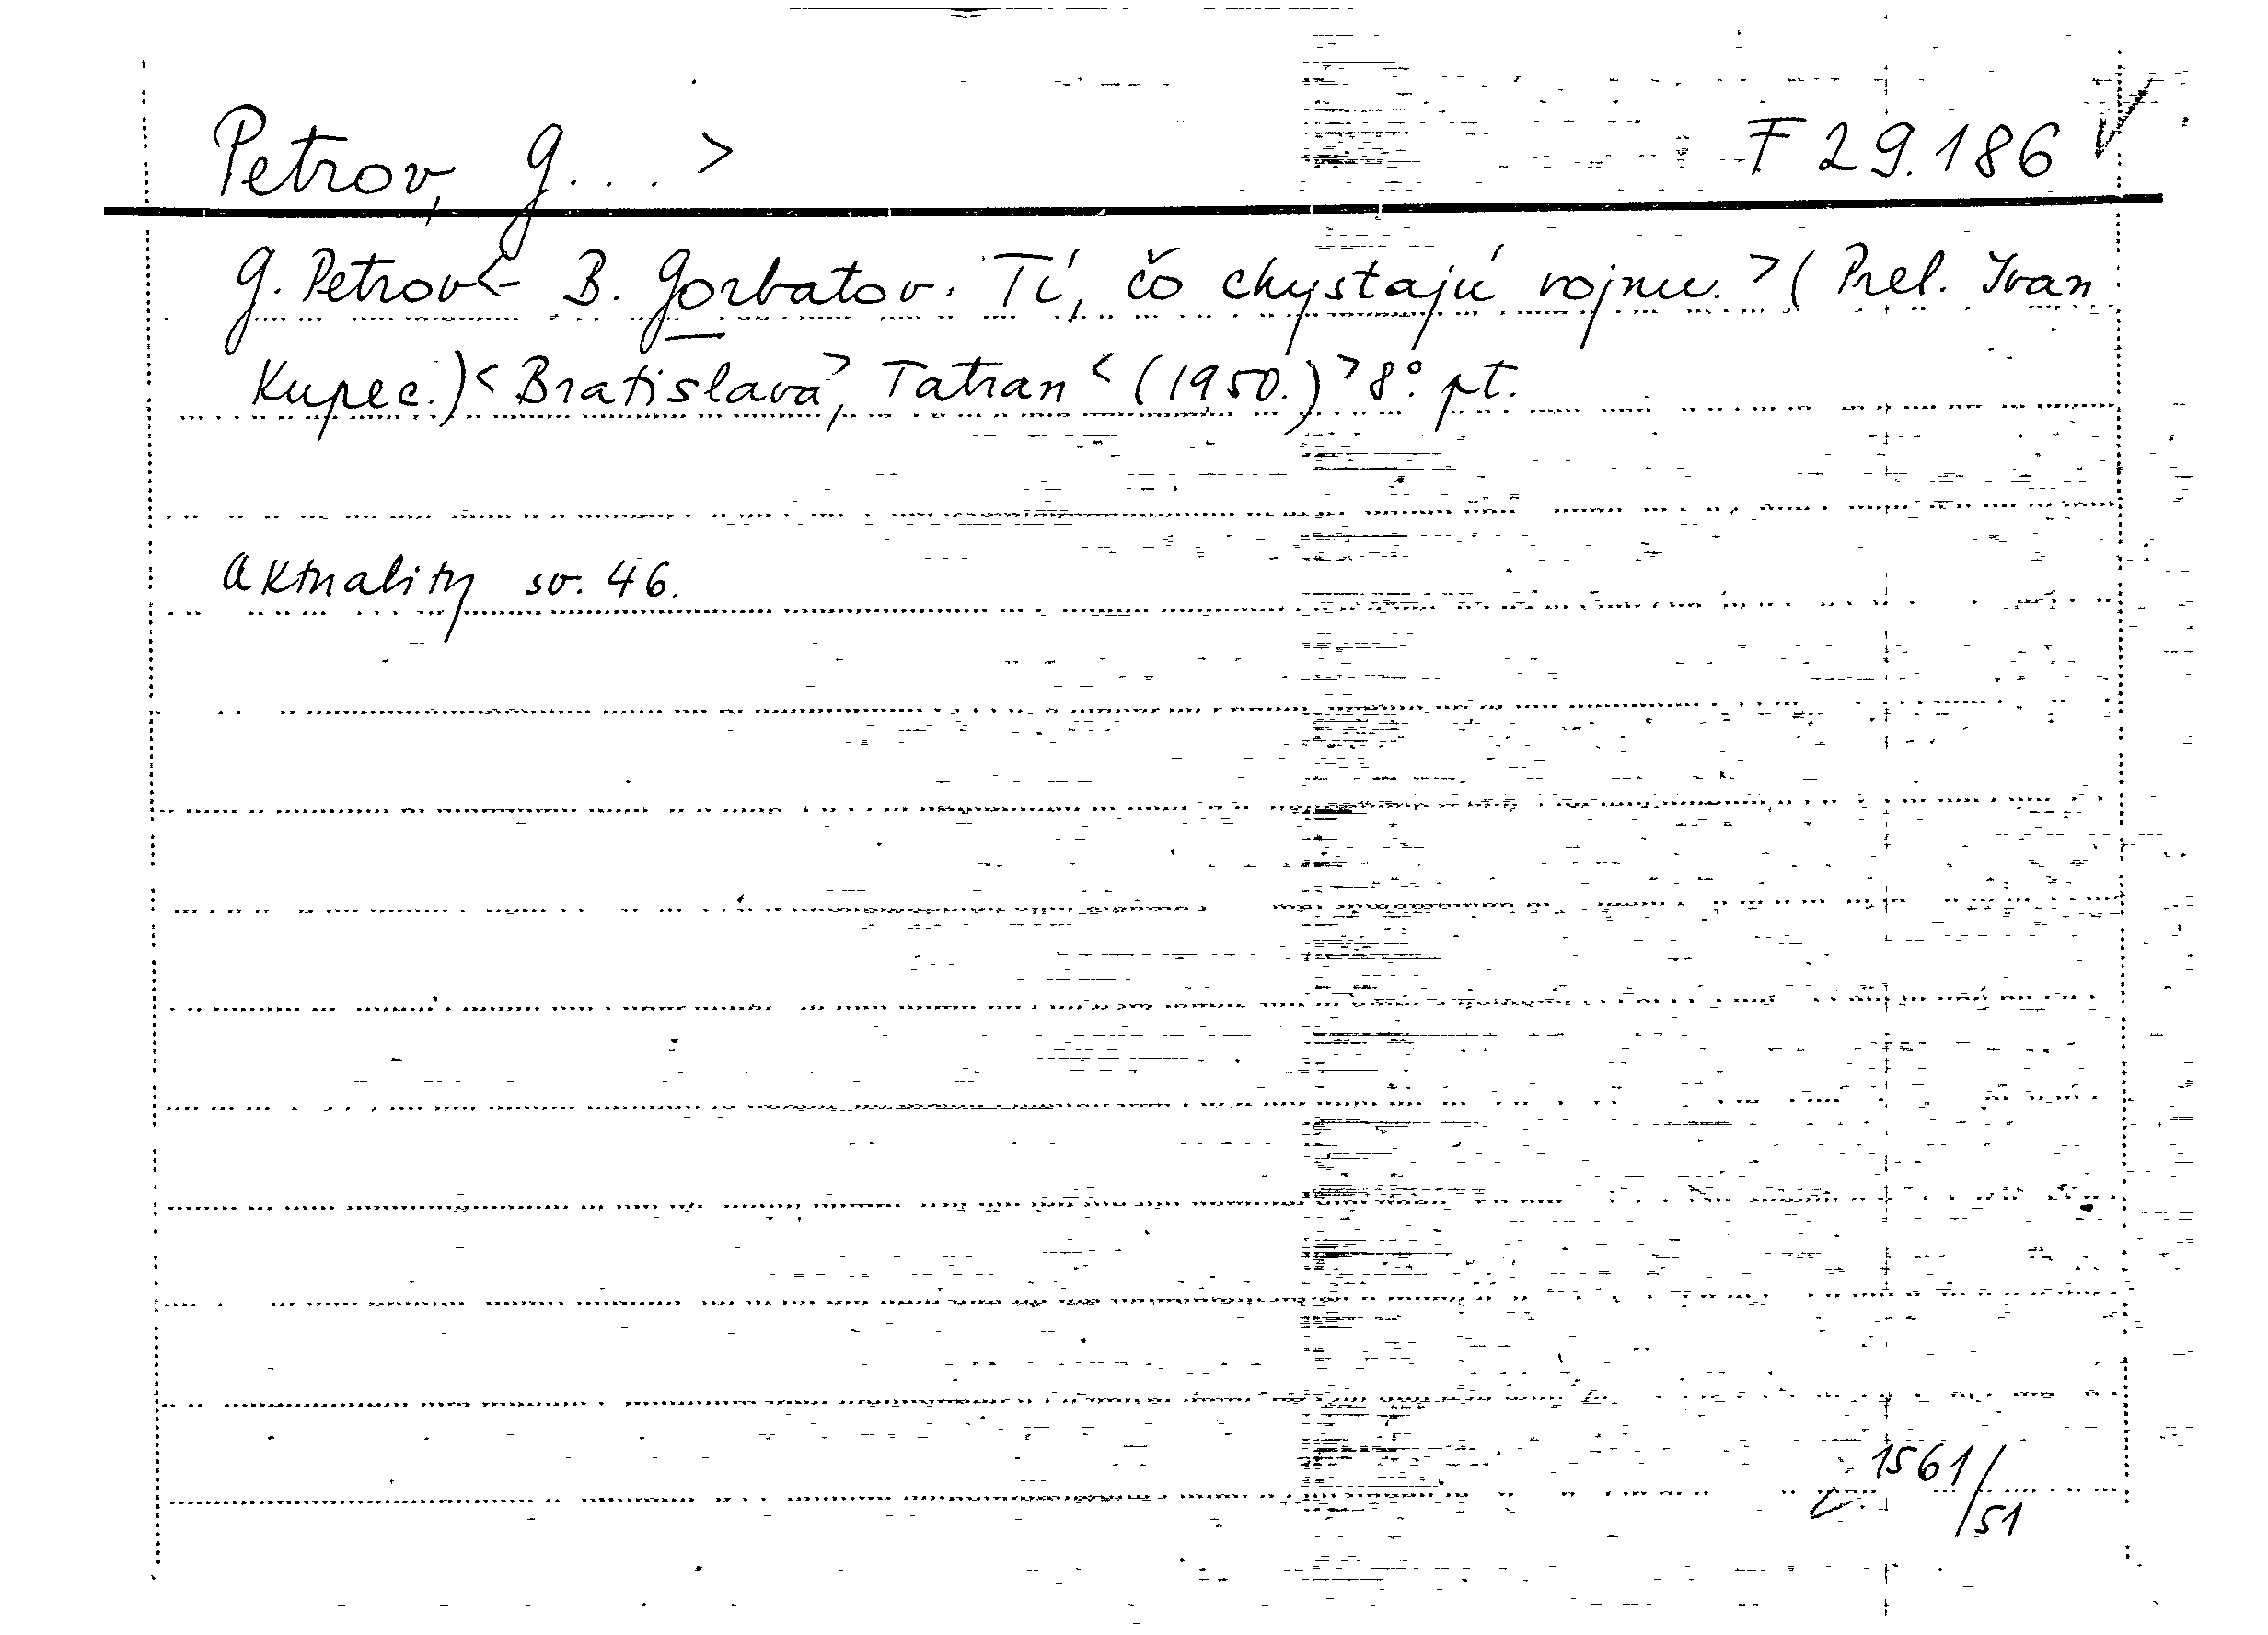 Petrov, G... > F 29.186 V
G. Petrov <- B. Gorbatov. Tí, čo chystajú vojnu. > (Prel. Ivan
Kupec.) < Bratislava >, Tatran < (1950.) > 8° pt.
Aktuality sv. 46.
1561/51